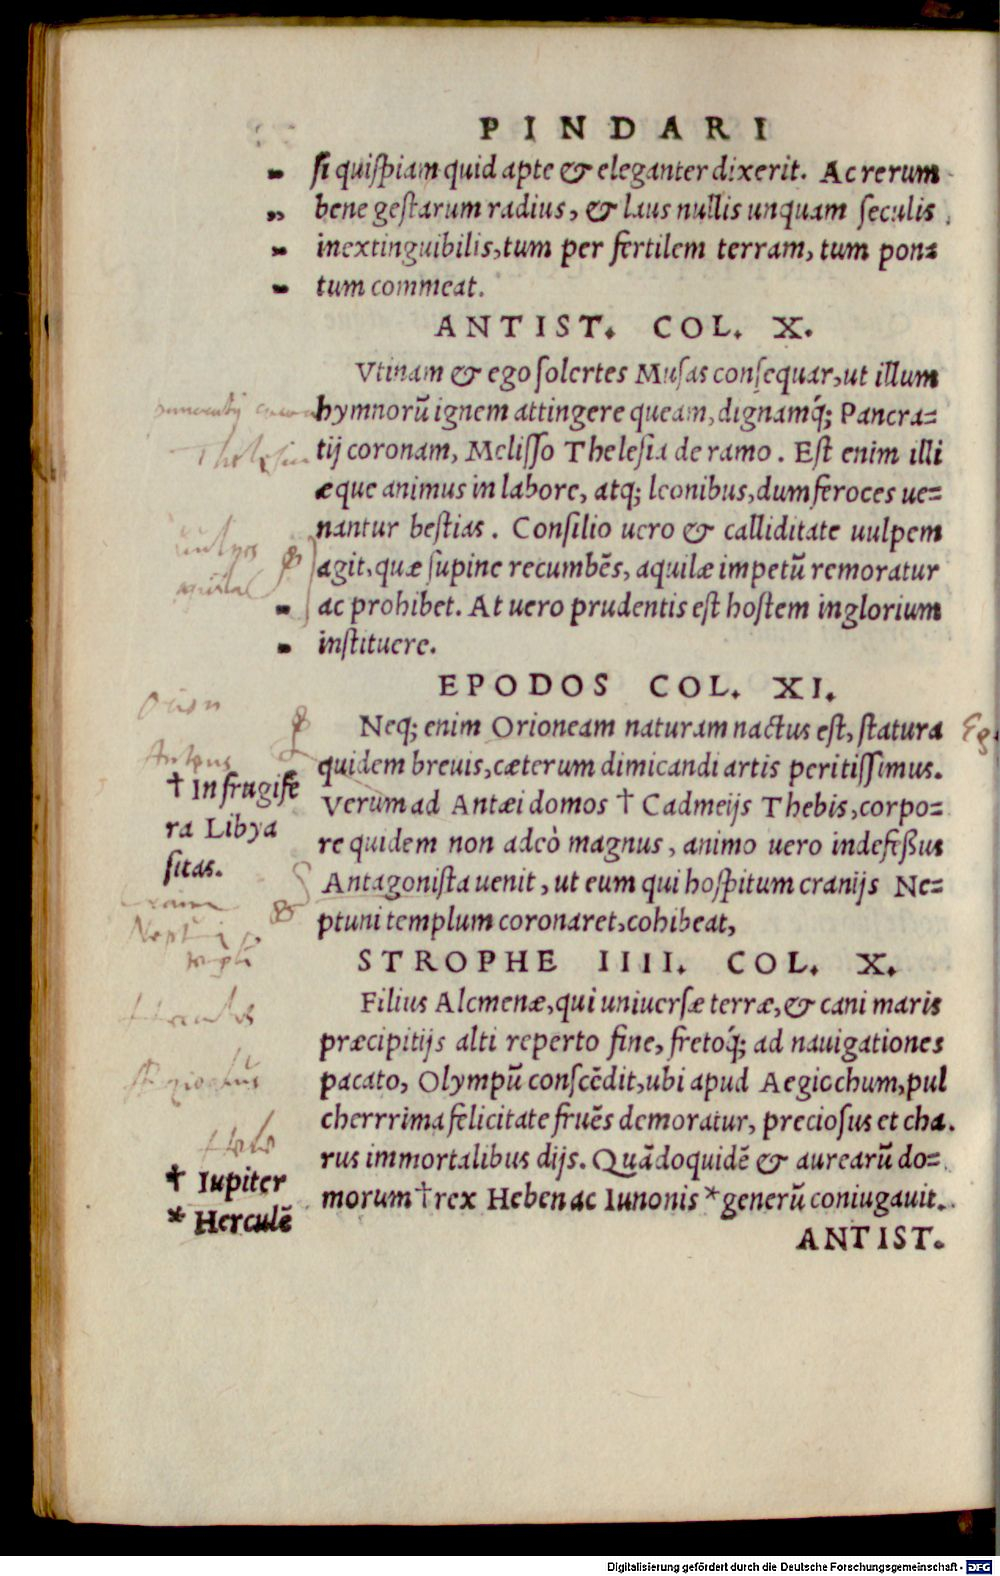 PINDARI
„ ſi quiſpiam quid apte & eleganter dixerit. Ac rerum
„ bene geſtarum radius, & laus nullis unquam ſeculis
„ inextinguibilis, tum per fertilem terram, tum pon=
„ tum commeat.
ANTIST. COL. X.
Vtinam & ego ſolertes Muſas conſequar, ut illum
hymnorū ignem attingere queam, dignamq́; Pancra=
tij coronam, Meliſſo Theleſia de ramo. Eſt enim illi
æque animus in labore, atq; leonibus, dum feroces ue=
nantur beſtias. Conſilio uero & calliditate uulpem
agit, quæ ſupine recumbēs, aquilæ impetū remoratur
„ ac prohibet. At uero prudentis eſt hoſtem inglorium
„ inſtituere.
EPODOS COL. XI.
Neq; enim Orioneam naturam nactus eſt, ſtatura
quidem breuis, cæterum dimicandi artis peritiſſimus.
Verum ad Antæi domos † Cadmeijs Thebis, corpo=
re quidem non adeò magnus, animo uero indefeßus
Antagoniſta uenit, ut eum qui hoſpitum cranijs Ne=
ptuni templum coronaret, cohibeat,
STROPHE IIII. COL. X.
Filius Alcmenæ, qui uniuerſæ terræ, & cani maris
præcipitijs alti reperto fine, fretoq́; ad nauigationes
pacato, Olympū conſcēdit, ubi apud Aegiochum, pul
cherrrima felicitate fruēs demoratur, precioſus et cha.
rus immortalibus dijs. Quādoquidē & aurearū do=
morum † rex Heben ac Iunonis * generū coniugauit.
ANTIST.
Theleſia
aquila
Orion
Antæus
† In frugife
ra Libya
ſitas.
Neptuni
templū
Hercules
† Iupiter
* Herculē
Digitalisierung gefördert durch die Deutsche Forschungsgemeinschaft - DFG